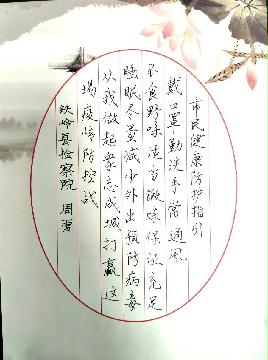 市民健康防护指引
戴口罩勤洗手常通风
不食野味适当锻炼保证充足
睡眠尽量减少外出预防病毒
从我做起众志成城打赢这
场疫情防控战
铁岭县检察院 周